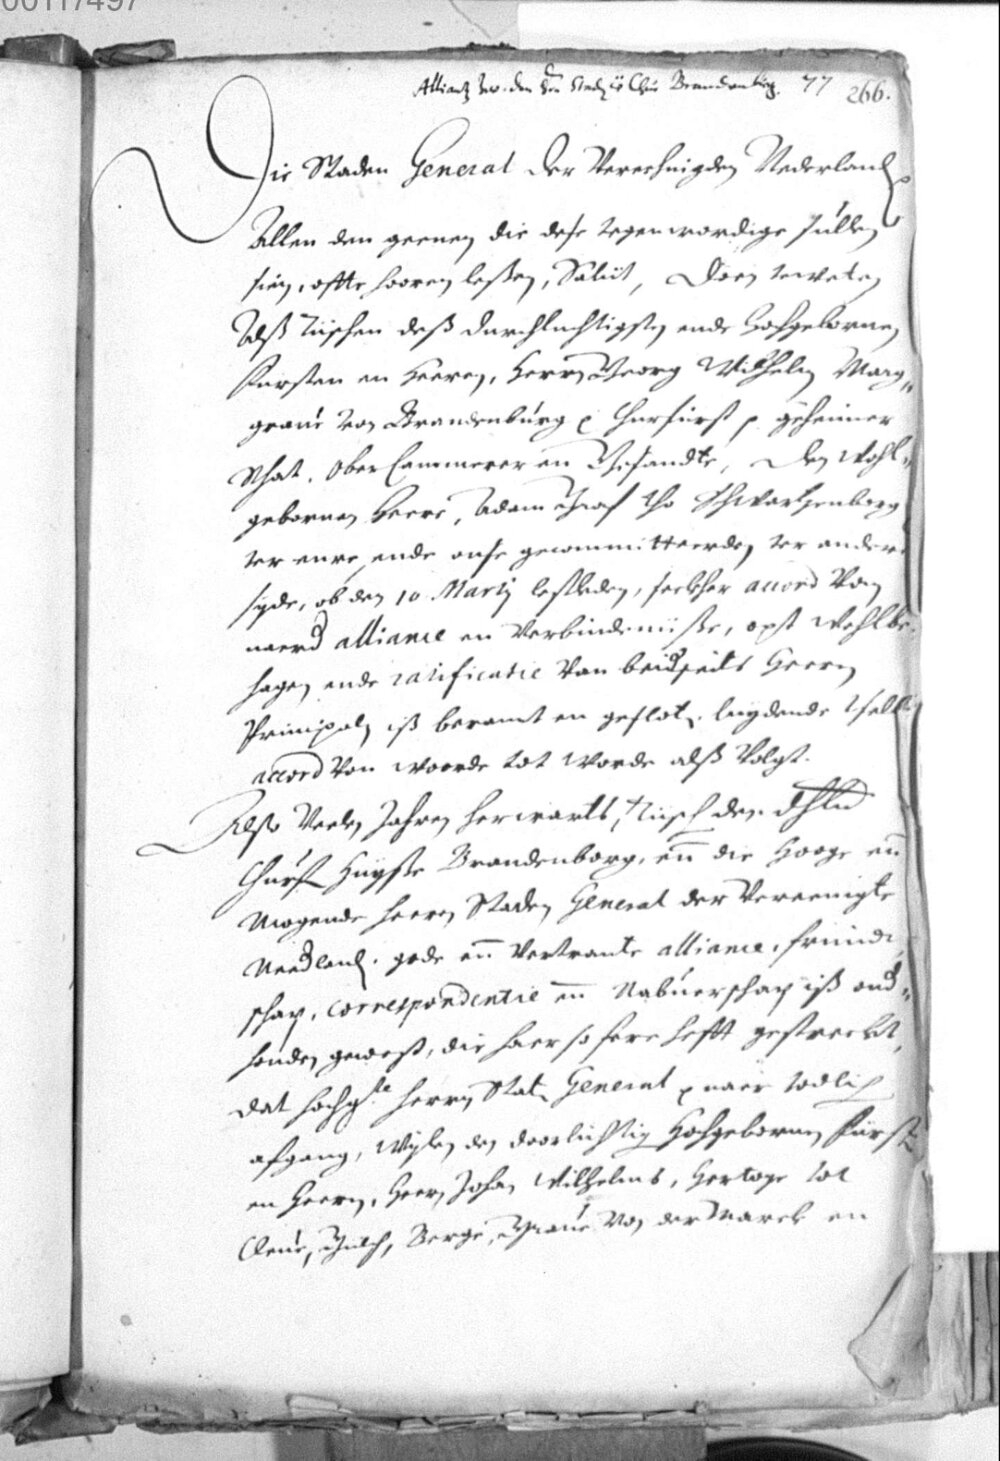 00117497
Alliantz zw. den Hrn Stad. u Chur Brandenburg. 77 266.
Die Staden General der Verehnigden Nederland
Allen den geenen die dese tegenwordige sullen
sien, offte hooren lesen, Salut, Doen te weten
Alß tüschen deß durchluchtigsten ende Hochgebornen
Fursten en Heeren, Herrn Georg Wilhelm Marg„
graue von Brandenburg Churfürst p. geheimer
Rhat, Ober Cammerer en Gesandte, Den wohl„
gebornen Heere, Adam Graf tho Schwartzenberg
ter eenre, ende onse gecommitteerden ter andere
syde, ob den 10 Martij lestleden, seecker accord Van
naerd alliance en Verbindenüsse, opst wehlbe„
hagen ende ratificatie Van beidseits Heern
Principaln iß beraemt en geslot. luydende tselbe
accord Von woorde tot worde alß Volgt.
Also Veele Jahren herwarts, tüsch den dhln
Churf Huysse Brandenborg, en die Hooge en
Mogende heern Staden General der Vereenigte
Nederland. gode en Vertraute alliance, fründ„
schap, correspondentie en Nabuerschap iß ond„
houden geweßt, die haer so fere hefft gestreckt,
Dat hochg.te herrn Stat. General p naer todlich
afgang, Wylen den doorlüchtig Hochgebornen Fürst
en Heern, Heern Johan Wilhelms, Hertoge tot
Cleue, Gulch, Berge, Graue Von der Marck en